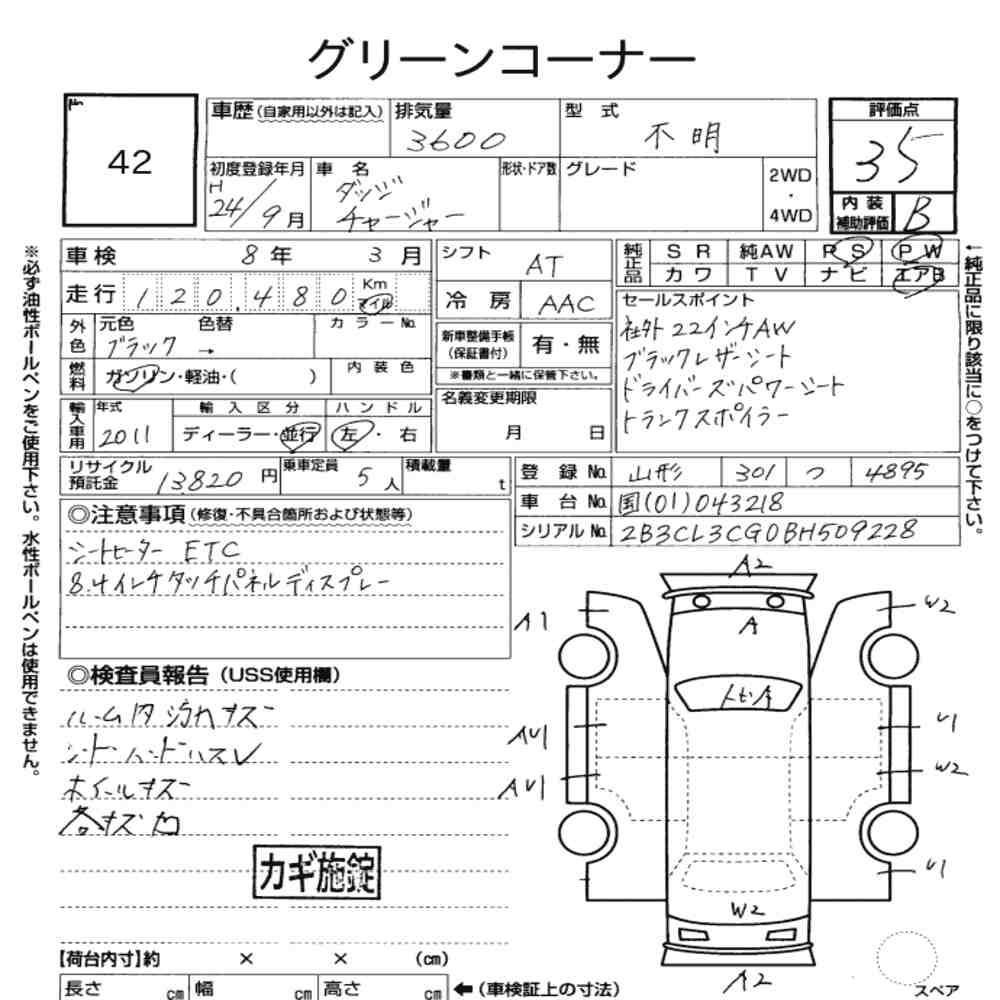 グリーンコーナー
42
車歴(自家用以外は記入)
排気量
3600
型 式
不明
評価点
35
初度登録年月
H
24/9月
車 名
ダッジ
チャージャー
形状・ドア数
グレード
2WD
・
4WD
内 装
補助評価
B
車検 8年 3月
走行 120,480 Km
マイル
外色
元色 色替
ブラック →
カラーNo.
燃料
ガソリン・軽油・( )
内 装 色
輸入車用
年式
2011
輸 入 区 分
ディーラー・並行
ハ ン ド ル
左・右
シフト
AT
冷 房
AAC
新車整備手帳
(保証書付)
有・無
※書類と一緒に保管下さい。
名義変更期限
月 日
純正品
S R 純AW P S P W
カ ワ T V ナ ビ エアB
セールスポイント
社外22インチAW
ブラックレザーシート
ドライバーズパワーシート
トランクスポイラー
←純正品に限り該当に○をつけて下さい。
※必ず油性ボールペンをご使用下さい。水性ボールペンは使用できません。
リサイクル
預託金
13820円
乗車定員
5人
積載量
t
登 録 No. 山形 301 つ 4895
車 台 No. 国(01)043218
シリアル No. 2B3CL3CG0BH509228
◎注意事項(修復・不具合箇所および状態等)
シートヒーター ETC
8.4インチタッチパネルディスプレー
◎検査員報告(USS使用欄)
ルーム内 汚れキズ
ホイールキズ
各キズ凹
カギ施錠
A2
A1
W2
A
トビA
AU1
U1
AU1
W2
U1
W2
A2
スペア
【荷台内寸】約 × × (cm)
長さ cm 幅 cm 高さ cm ←(車検証上の寸法)